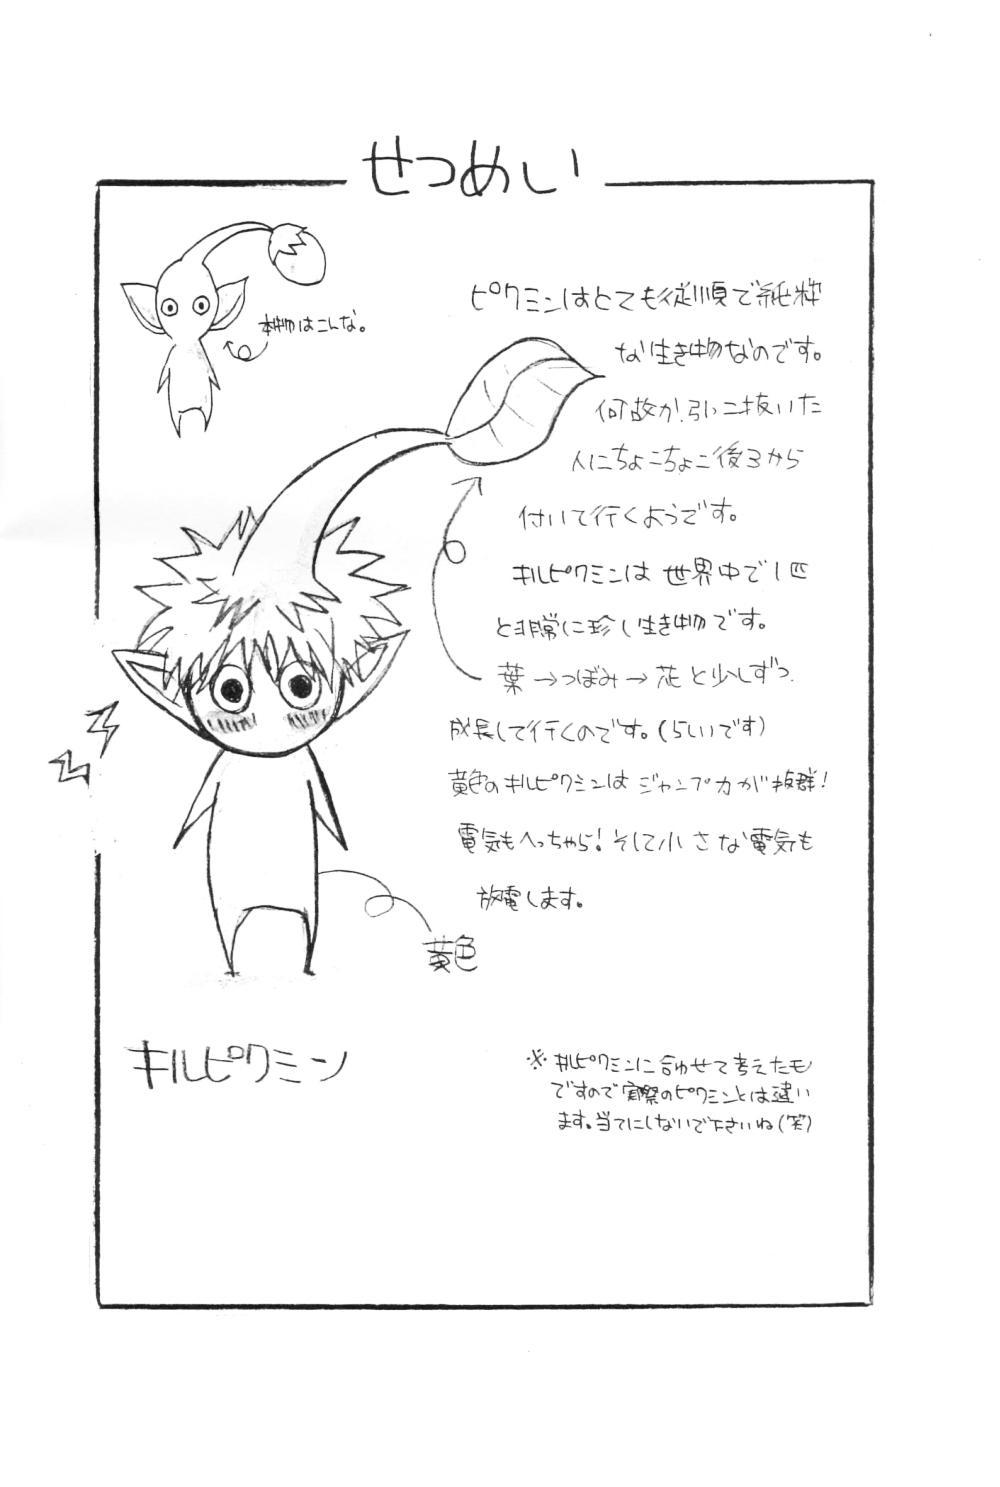 せつめい
本物はこんな。
ピクミンはとても従順で純粋
な生き物なのです。
何故か、引っこ抜いた
人にちょこちょこ後ろから
付いて行くようです。
キルピクミンは世界中で1匹
と非常に珍し生き物です。
葉→つぼみ→花と少しずつ
成長して行くのです。(らしいです)
黄色のキルピクミンはジャンプ力が抜群!
電気もへっちゃら!そして小さな電気も
放電します。
黄色
キルピクミン
※キルピクミンに合わせて考えたモノ
ですので実際のピクミンとは違い
ます。当てにしないで下さいね(笑)